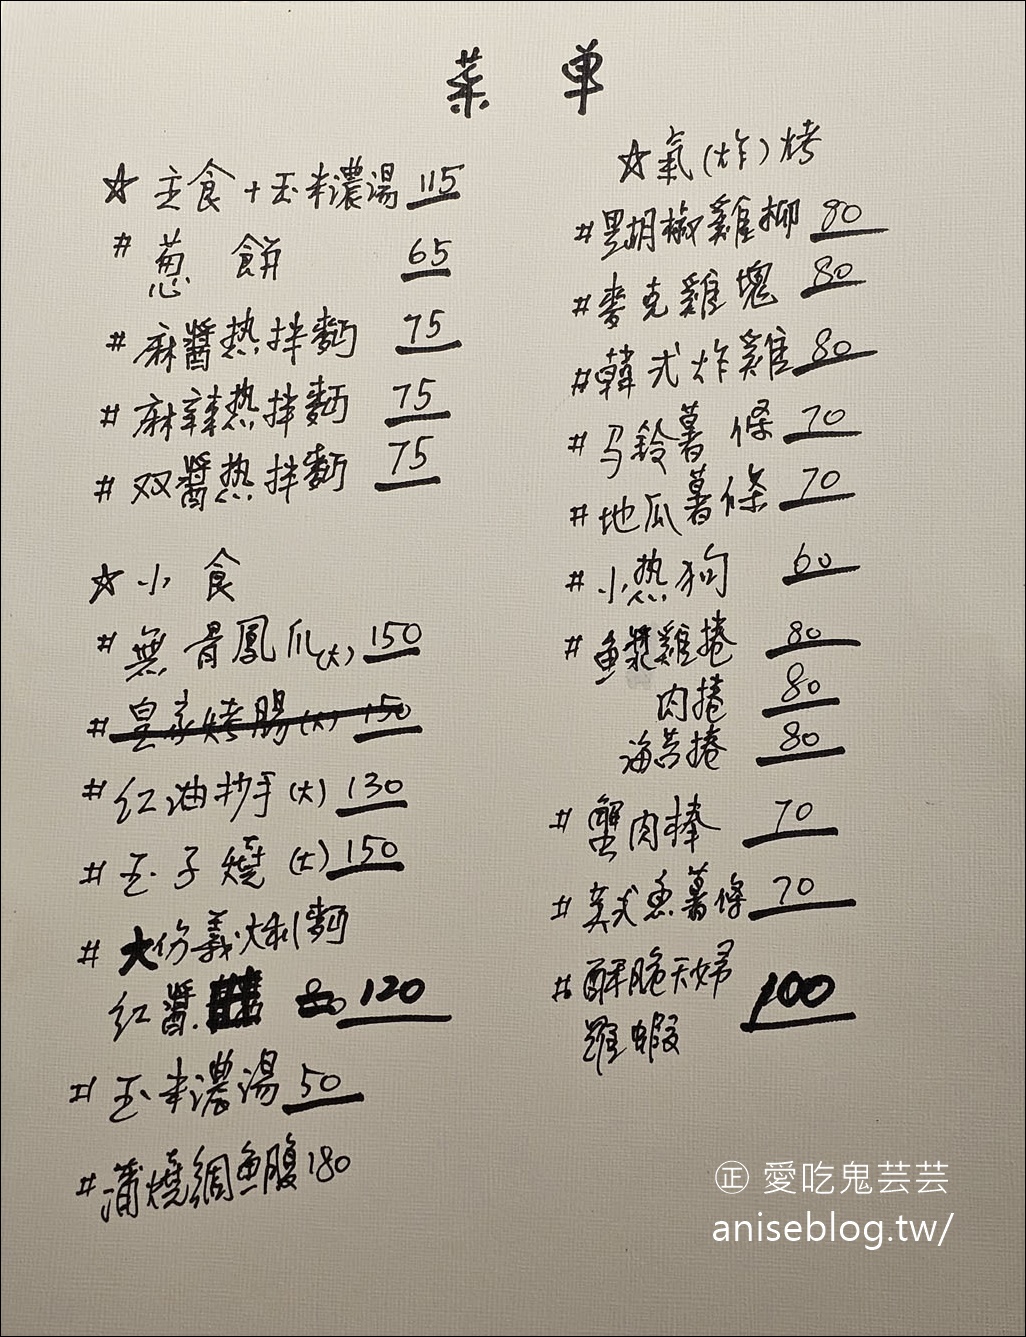 菜单
☆主食+玉米濃湯 115
# 葱餅 65
# 麻醬热拌麵 75
# 麻辣热拌麵 75
# 双醬热拌麵 75
☆小食
# 無骨鳳爪(大) 150
# 皇家烤腸(大) 150
# 红油抄手(大) 130
# 玉子燒(大) 150
# 大份義大利麵
红醬 120
# 玉米濃湯 50
# 蒲燒鯛魚腹 180
☆氣(炸)烤
# 黑胡椒雞柳 80
# 麥克雞塊 80
# 韓式炸雞 80
# 马鈴薯條 70
# 地瓜薯條 70
# 小热狗 60
# 魚漿雞捲 80
肉捲 80
海苔捲 80
# 蟹肉棒 70
# 英式魚薯條 70
# 酥脆天婦
羅蝦 100
正 愛吃鬼芸芸
aniseblog.tw/